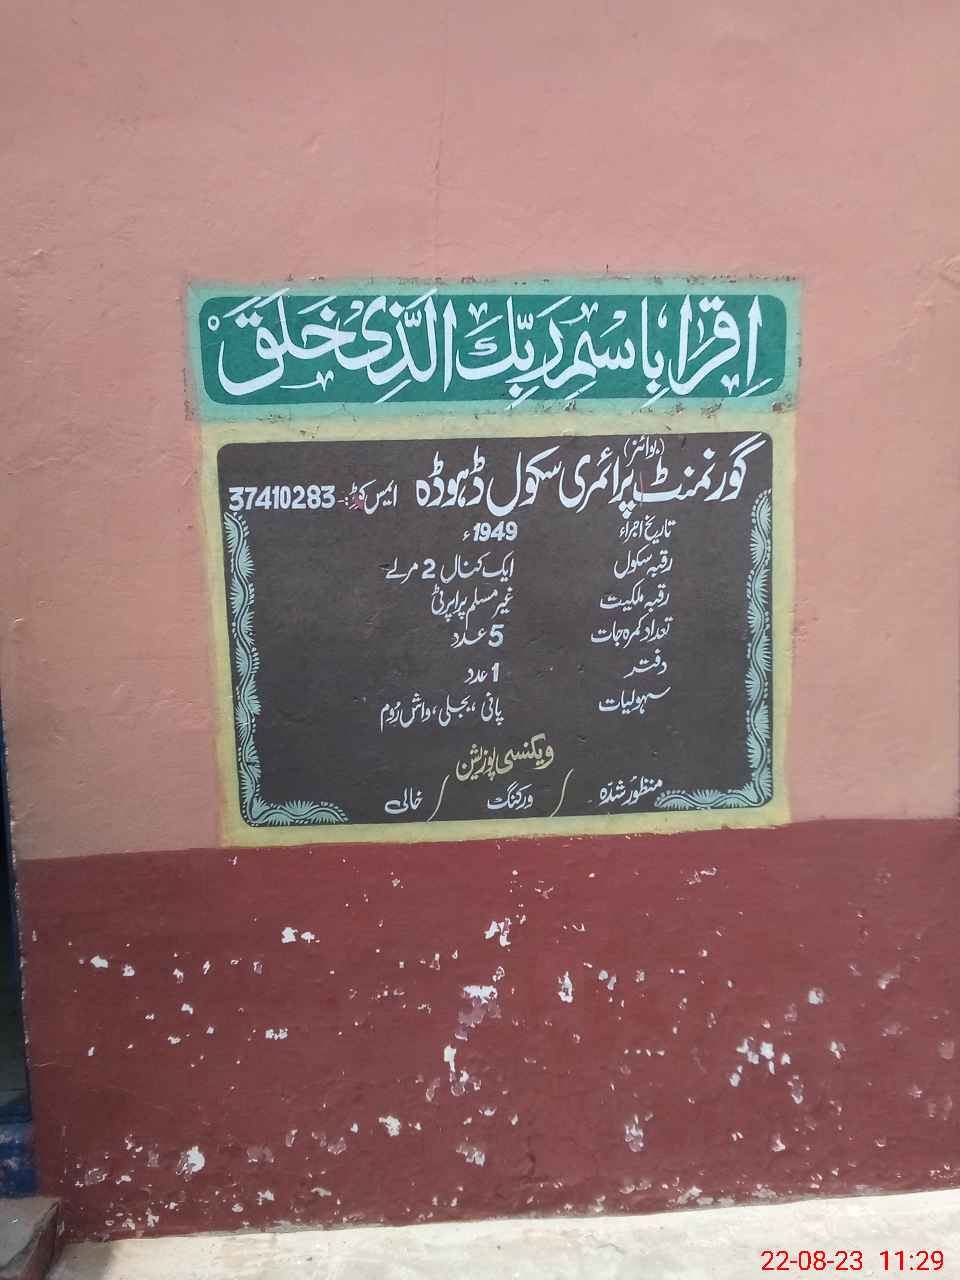 اِقْرَا بِاسْمِ رَبِّكَ الَّذِىْ خَلَقَ
گورنمنٹ (بوائز) پرائمری سکول ڈہوڈہ ایمس کوڈ:- 37410283
تاریخ اجراء 1949ء
رقبہ سکول ایک کنال 2 مرلے
رقبہ ملکیت غیر مسلم پراپرٹی
تعداد کمرہ جات 5 عدد
دفتر 1 عدد
سہولیات پانی ، بجلی ، واش رُوم
ویکنسی پوزیشن
منظور شدّہ / ورکنگ / خالی
22-08-23 11:29